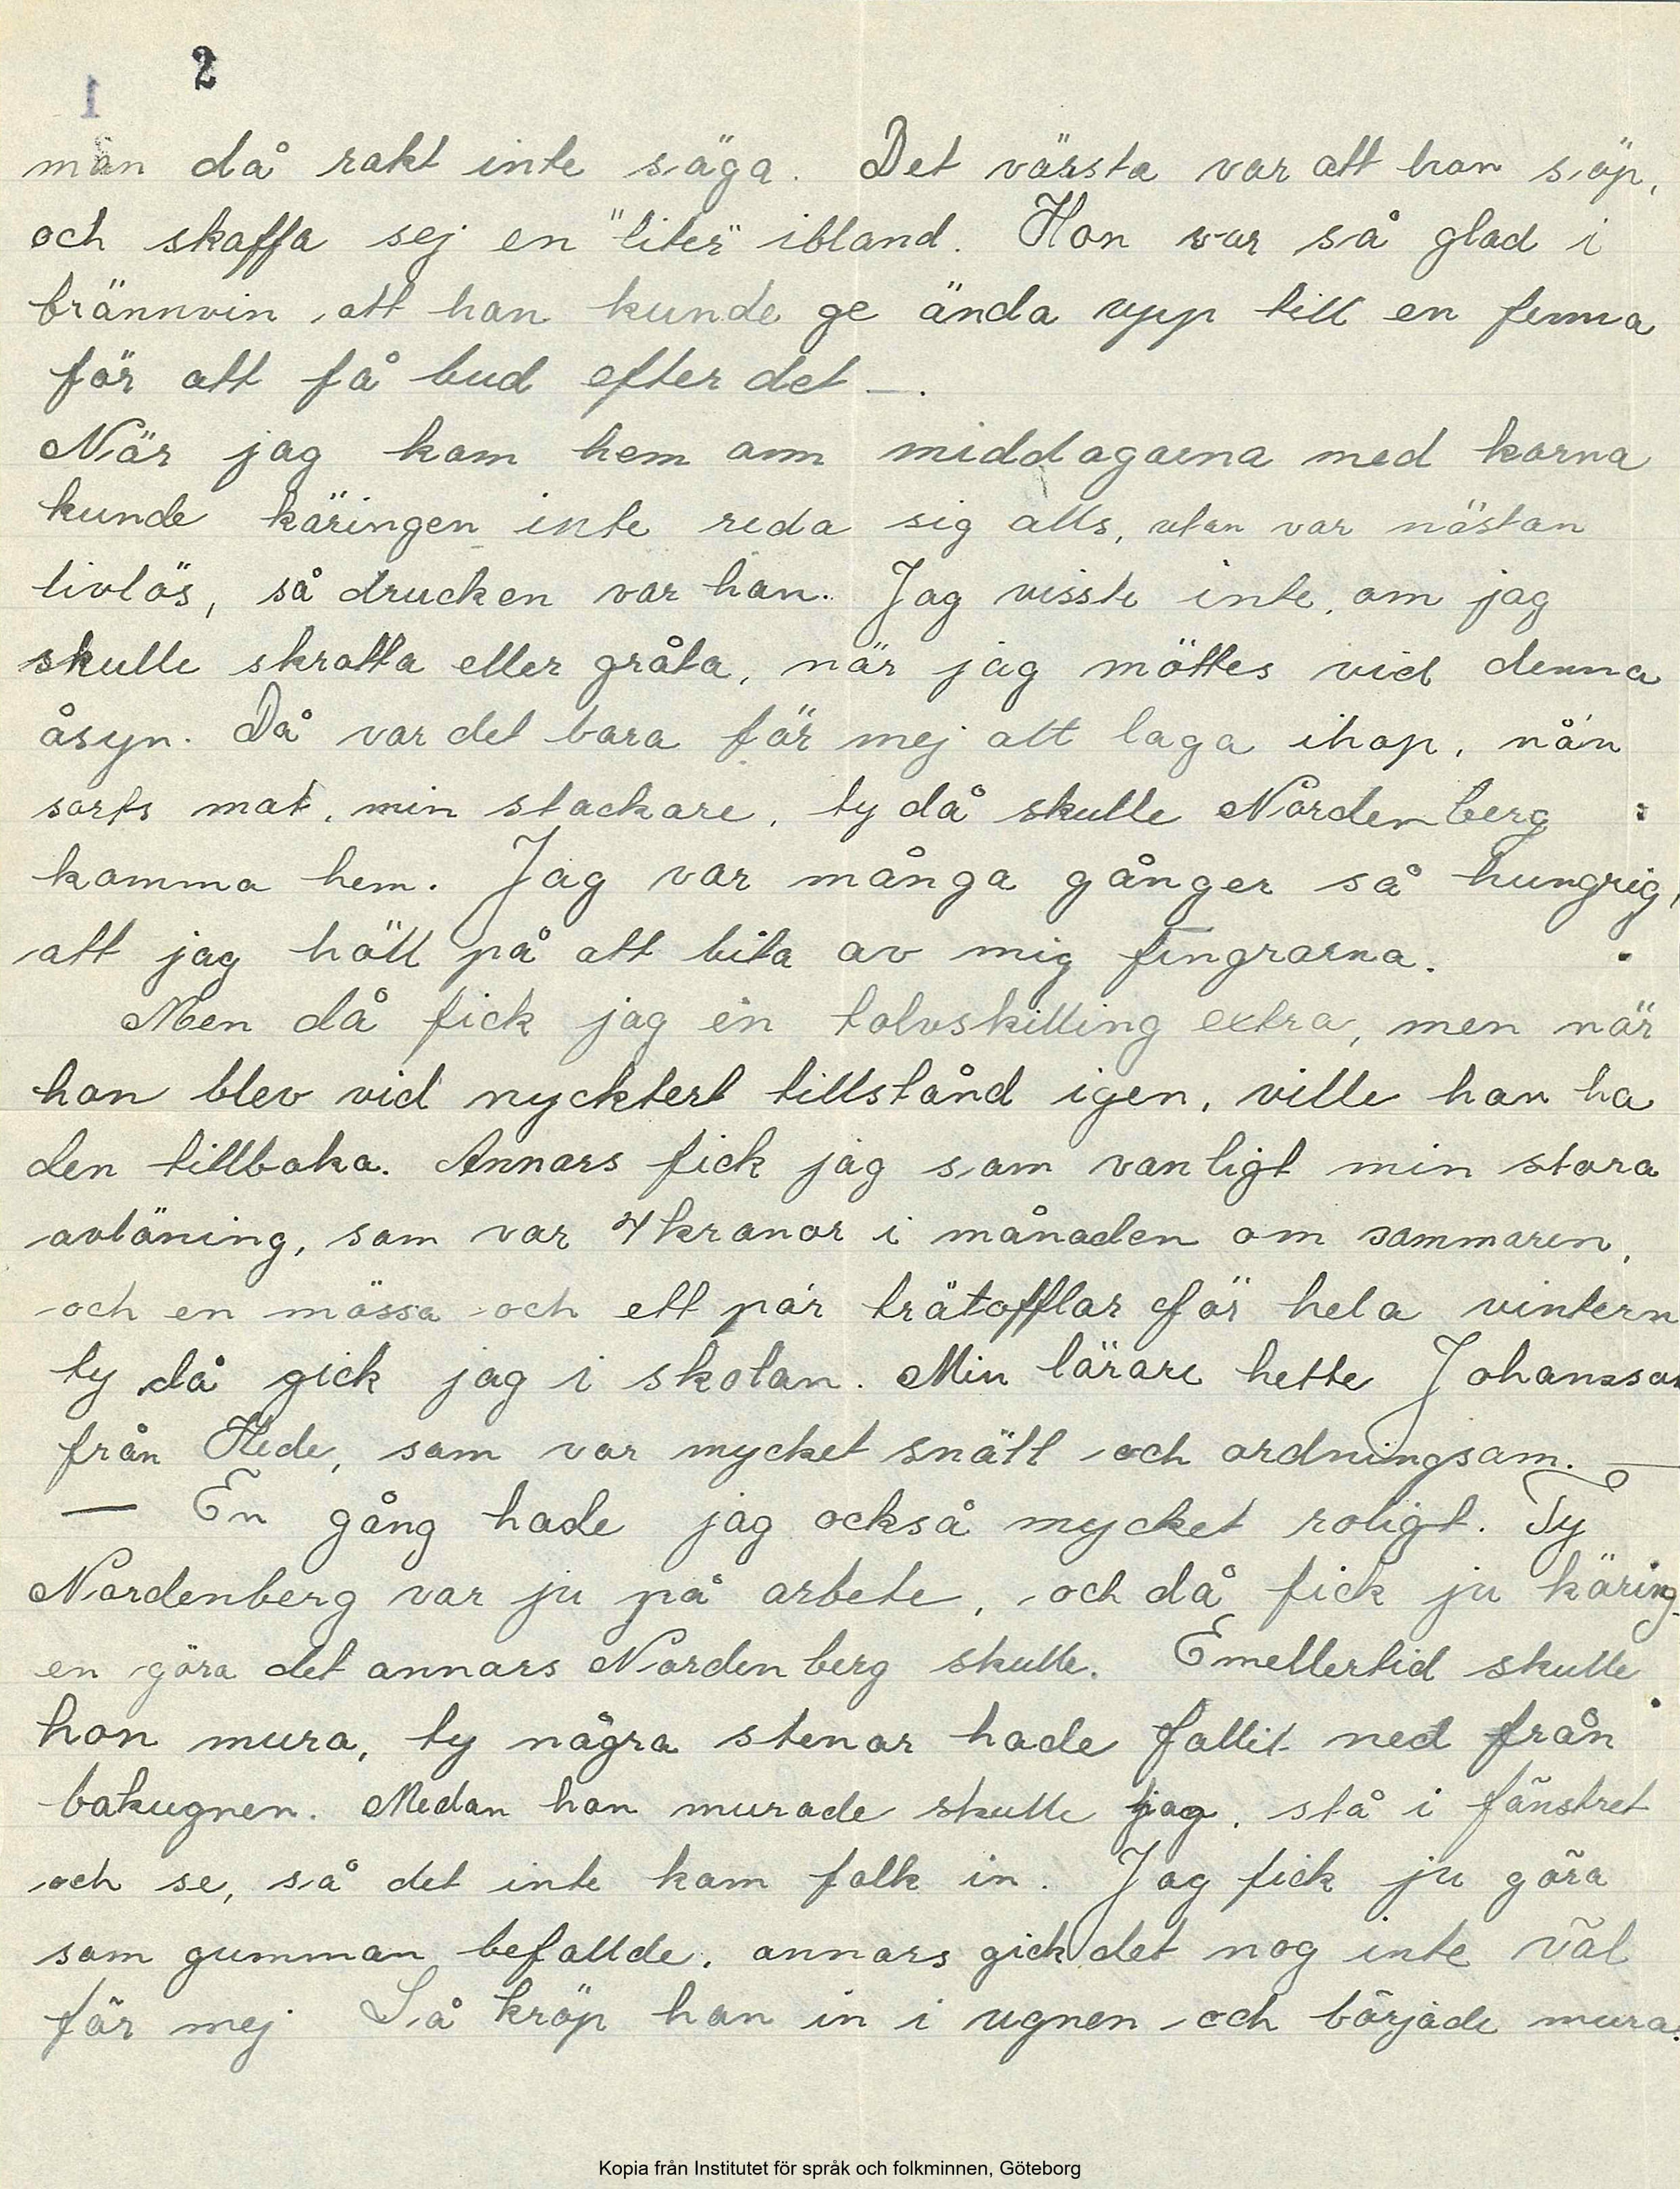 2
1
man då rakt inte säga. Det värsta var att hon söp,
och skaffa sej en "liter" ibland. Hon var så glad i
brännvin, att hon kunde ge ända upp till en femma
för att få bud efter det —.
När jag kom hem om middagarna med korna
kunde käringen inte reda sig alls, utan var nästan
livlös, så drucken var hon. Jag visste inte, om jag
skulle skratta eller gråta, när jag möttes vid denna
åsyn. Då var det bara för mej att laga ihop, nå'n
sorts mat, min stackare, ty då skulle Nordenberg
komma hem. Jag var många gånger så hungrig,
att jag höll på att bita av mig fingrarna.
Men då fick jag en tolvskilling extra, men när
hon blev vid nycktert tillstånd igen, ville hon ha
den tillbaka. Annars fick jag som vanligt min stora
avlöning, som var 4 kronor i månaden om sommaren,
och en mössa och ett par trätofflor för hela vintern
ty då gick jag i skolan. Min lärare hette Johansson
från Hede, som var mycket snäll och ordningsam. —
— En gång hade jag också mycket roligt. Ty
Nordenberg var ju på arbete, och då fick ju käring-
en göra det annars Nordenberg skulle. Emellertid skulle
hon mura, ty några stenar hade fallit ned från
bakugnen. Medan hon murade skulle jag, stå i fönstret
och se, så det inte kom folk in. Jag fick ju göra
som gumman befallde, annars gick det nog inte väl
för mej Så kröp hon in i ugnen och började mura.
Kopia från Institutet för språk och folkminnen, Göteborg